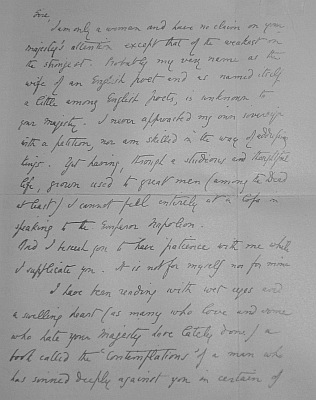 Sire,
I am only a woman and have no claim on your
majesty's attention except that of the weakest on
the strongest. Probably my very name as the
wife of an English poet and as named itself
a little among English poets, is unknown to
your Majesty. I never approached my own sovereign
with a petition, nor am skilled in the way of addressing
kings. Yet having, through a studious and thoughtful
life, grown used to great men (among the Dead
at least) I cannot feel entirely at a loss in
speaking to the Emperor Napoleon.
And I beseech you to have patience with me while
I supplicate you. It is not for myself nor for mine
I have been reading with wet eyes and
a swelling heart (as many who love and some
who hate your Majesty have lately done) a
book called the "Contemplations" of a man who
has sinned deeply against you in certain of